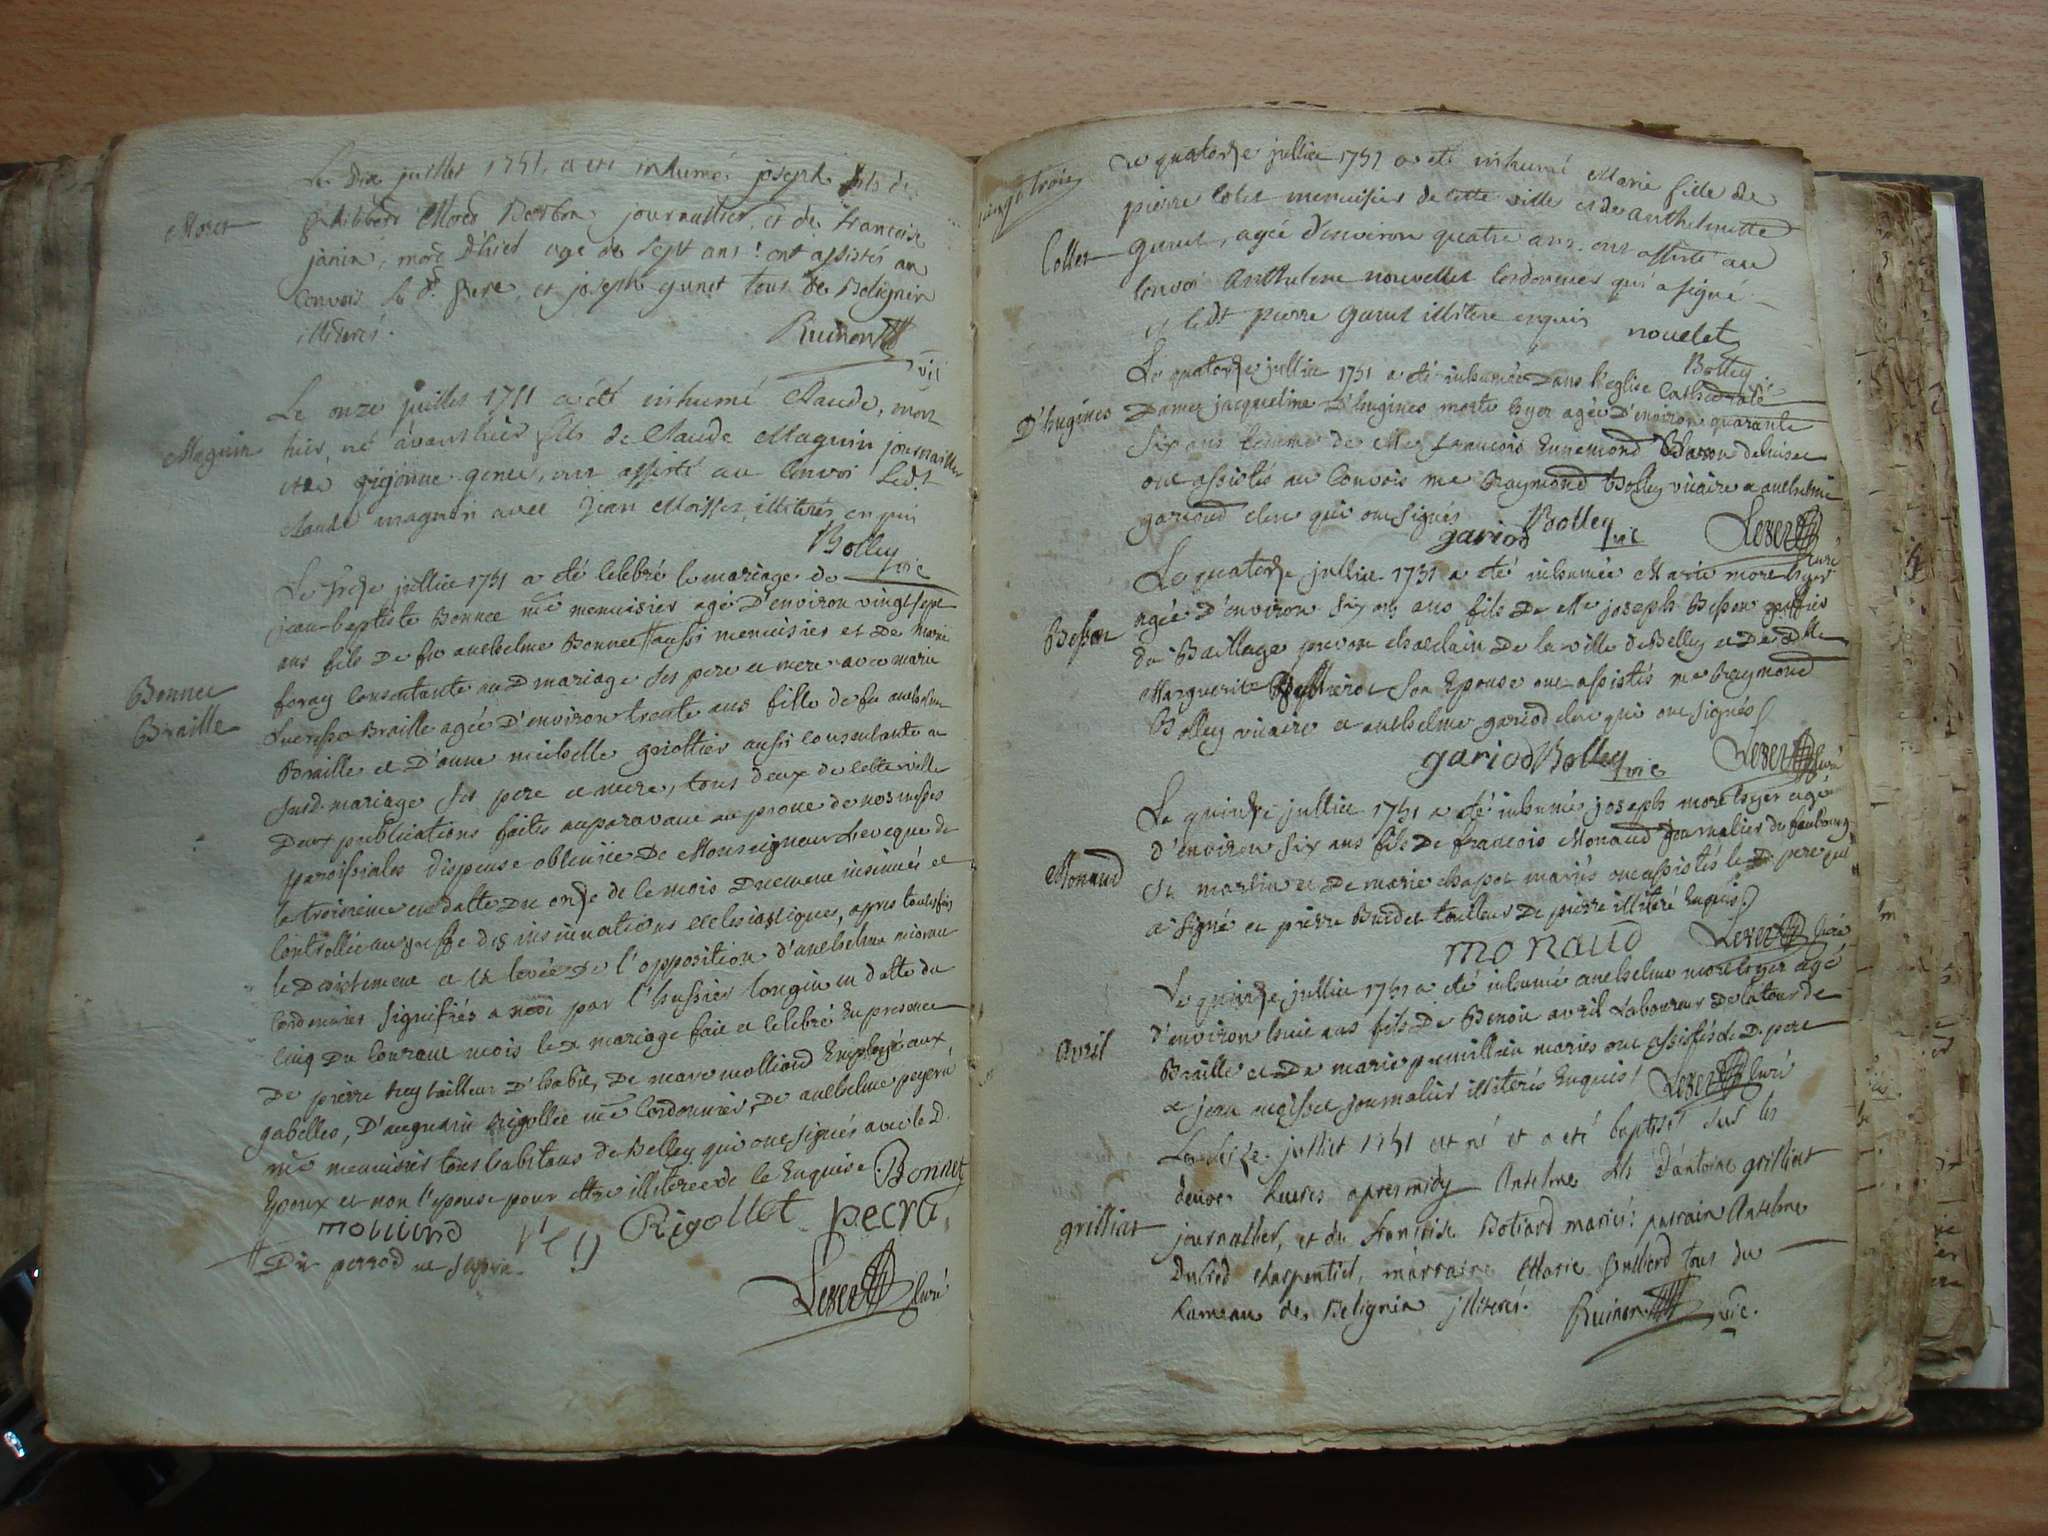 Moret
Le Dix juillet 1751, a été inhumé joseph fils de
philibert Moret Berthon journallier, et de francoise
janin, mort D'hier agé de sept ans: ont assistés au
Convois le dt. pere, et joseph gunet tous de Bolignin
illiterés.
Ruinon
vic
Magnin
Le onze juillet 1751 a été inhumé Claude, mort
hier, né avanthier fils de Claude Magnin journaillier
et de genet, ont assisté au Convoi Ledt
Claude magnin avec Jean illiterés enquis
Bolley
vic
Bonnet
Braille
Le treize jullie 1751 a été celebré le mariage de
jean-baptiste Bonnet me menuisier agé D'environ vingt sept
ans fils De fu anthelme Bonnet aussi menuisier et De marie
foray consentante aud mariage ses pere et mere avec marie
Lucresse Braille agée D'environ trente ans fille de fu anthelme
Braille et D'anne michelle griottier aussi consentante au
susd. mariage ses pere et mere, tous deux de cette ville
Deux publications faites auparavant au prone de nos messes
paroissiales dispense obtenüe De Monseigneur Leveque de
la troisieme en datte Du onze de le mois Duement insinuée et
Controllée au greffe des insinuations ecclesiastiques, apres toutesfois
le Desistement et la levée De l'opposition d'anthelme
Cordonnier signifiés a moi par l'hussier longin en datte du
cinq Du courant mois le d mariage fait et celebré En presence
De pierre Rey tailleur D'habit, De marc molliand Employé aux
gabelles, D'augustin Rigollet me Cordonnier, De anthelme peyera
me menuisier tous habitans de Belley qui ont signés avec le D.
Epoux et non l'epouse pour etre illiterée de le Enquise. Bonnet
molliand Rey Rigollet pecra
Dit perrod ne
Leret curé
vingt trois
Collet
Le quatorze jullie 1751 a eté inhumé Marie fille de
pierre Colet menuisier de cette ville et de anthelmette
gunet, agée d'environ quatre ans. ont assisté au
Convoi Anthelme nouvellet Cordonnier qui a signé
et ledt pierre gunet illitere enquis nouelet
Bolley
vic
D'hugines
Le quatorze jullie 1751 a été inhumée Dans l'eglise Cathedrale
Dame jacqueline D'hugines morte hyer agée D'environ quarante
six ans femme de Me francois Ennemond Baron
ont assistés au Convois me Raymond Bolley vicaire et anthelme
gariod clerc qui ont signés
gariod Bolley
vic Leret
curé
Besson
Le quatorze jullie 1751 a eté inhumée Marie morte hyer
agée D'environ six ans fils De Me joseph Besson greffier
du Baillage prevot chatelain De la ville de Belley et De Dlle
Marguerite son Epouse ont assistés me Raymond
Bolley vicaire et anthelme gariod clerc qui ont signés
gariod Bolley
vic Leret curé
Monaud
Le quinze jullie 1751 a été inhumé joseph mort hyer agé
d'environ six ans fils De francois Monaud journalier du faubourg
St martin et De marie chapot mariés ont assistés le D pere qui
a signé et pierre Burdet tailleur De pierre illiteré Enquis
monaud Leret curé
avril
Le quinze jullie 1751 a été inhumé anthelme mort hyer agé
d'environ huit ans fils De Benoit avril Laboureur De latour de
Braille et De marie mariés ont assistés le D. pere
et jean journalier illiterés Enquis
Leret curé
grilliat
Le seize juillet 1751 est né et a eté baptisé sur les
deuxe heures apresmidy Anselme fils d'antoine grilliat
journallier, et de francoise Botiard mariés: parrain Anselme
Dubied charpentier, marraine Marie tous du
hameau de Belignin illiterés. Ruinon vic.